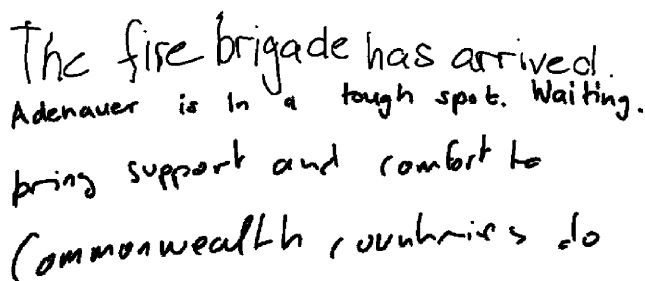 The fire brigade has arrived.
Adenauer is in a tough spot. Waiting.
bring support and comfort to
Commonwealth countries do